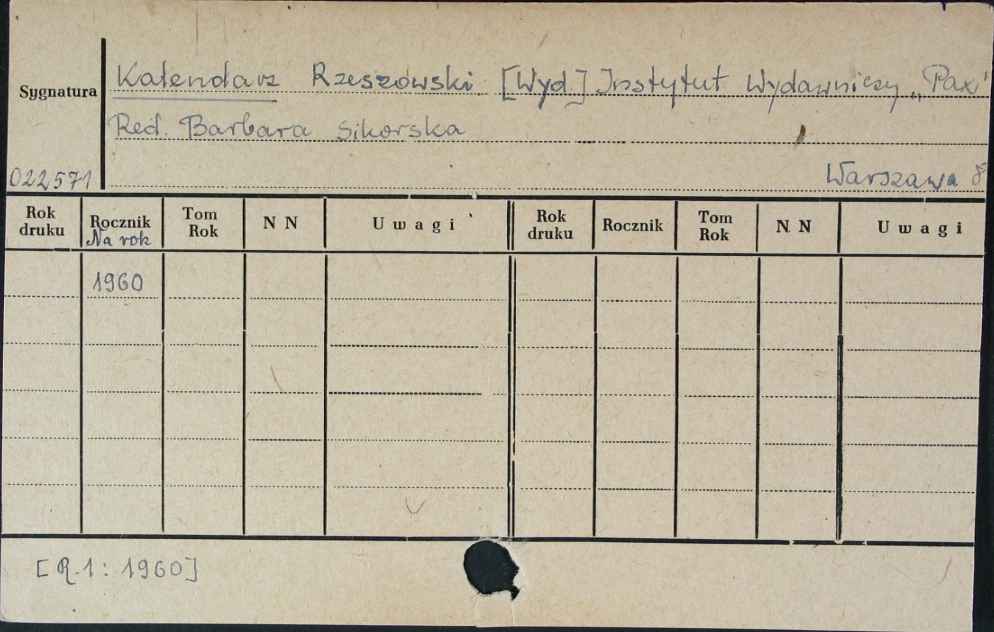 Kalendarz Rzeszowski [Wyd.] Instytut Wydawniczy „Pax”
Sygnatura
Red. Barbara Sikorska
022571 Warszawa 8°
Rok druku Rocznik Na rok Tom Rok N N Uwagi Rok druku Rocznik Tom Rok N N Uwagi
1960
[R.1: 1960]